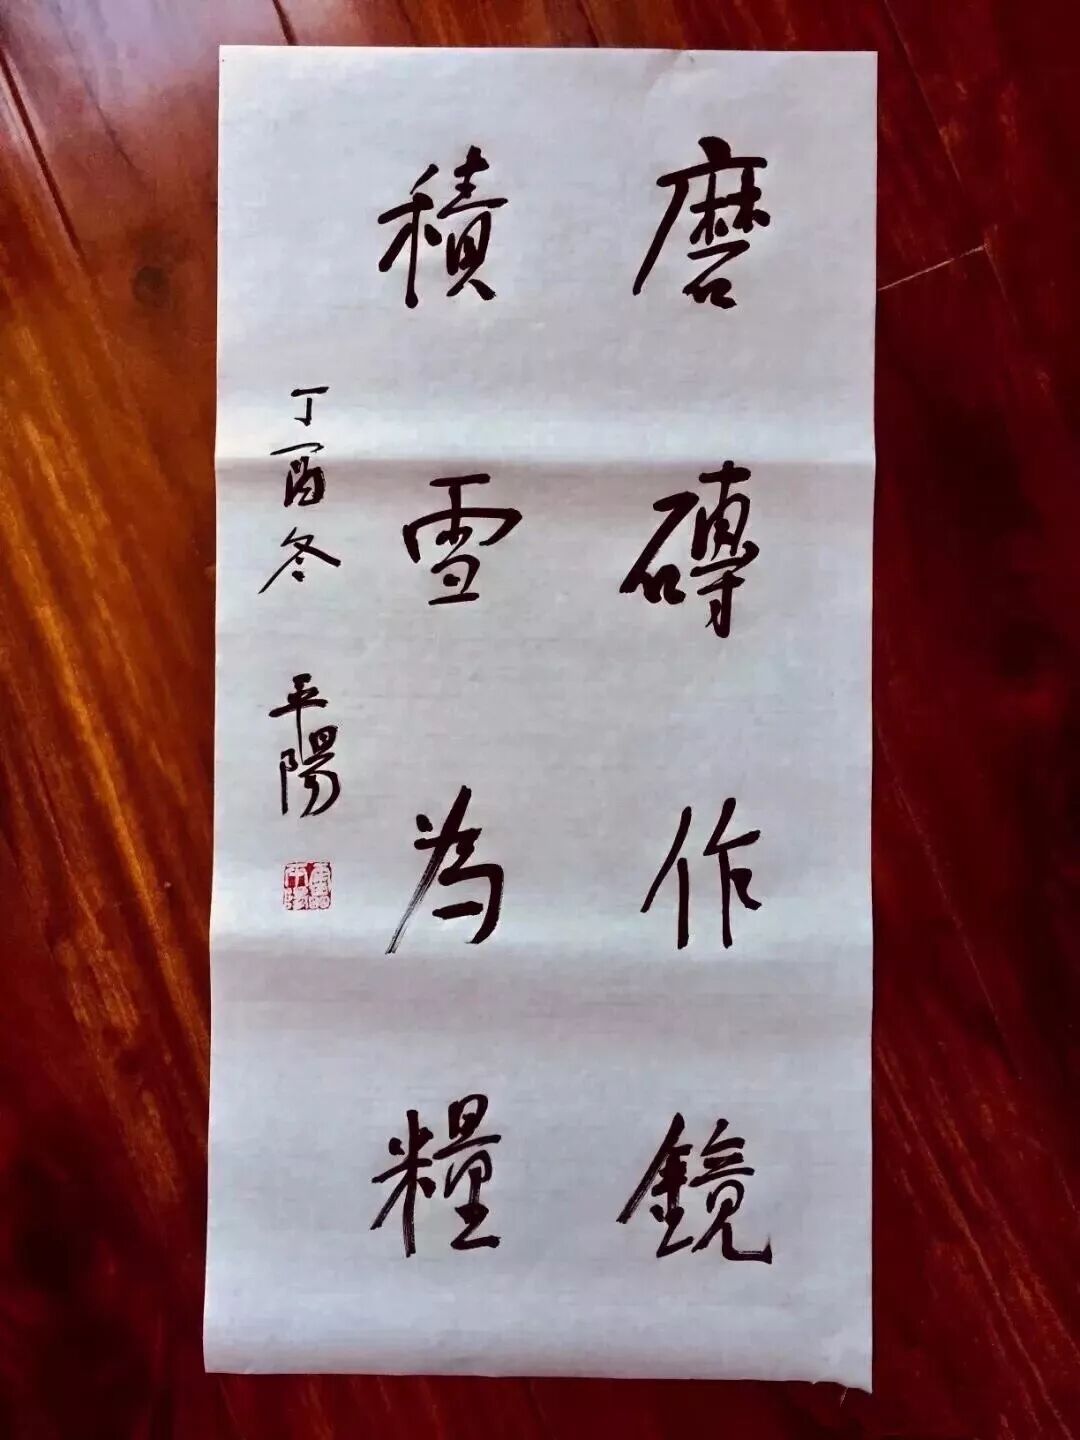 磨磚作鏡
積雪為糧
丁酉冬 平陽